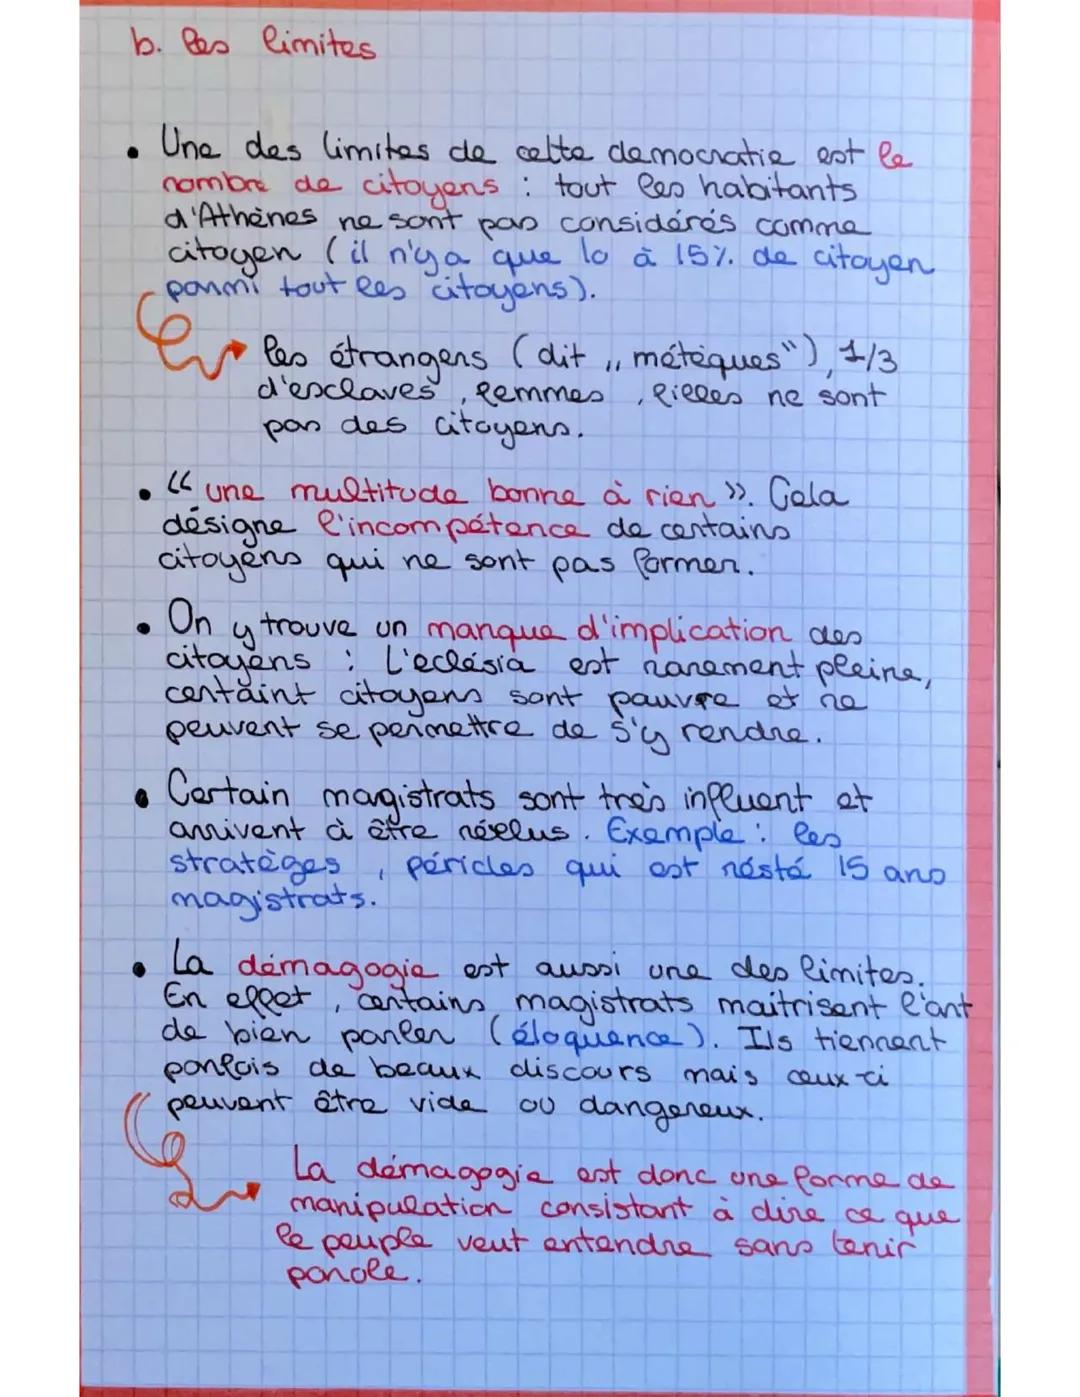 b. les limites
• Une des limites de cette democratie est le
nombre de citoyens : tout les habitants
d'Athènes ne sont pas considérés comme
citoyen ( il n'y a que 10 à 15% de citoyen
parmi tout les citoyens ).
les étrangers ( dit ,, métèques" ), 1/3
d'esclaves , femmes , filles ne sont
pas des citoyens.
• « une multitude bonne à rien ». Cela
désigne l'incompétence de certains
citoyens qui ne sont pas former.
• On y trouve un manque d'implication des
citoyens : L'eclésia est rarement pleine,
certaint citoyens sont pauvre et ne
peuvent se permettre de s'y rendre.
• Certain magistrats sont très influent et
arrivent à être réelus. Exemple : les
stratèges , périclès qui est résté 15 ans
magistrats.
• La démagogie est aussi une des limites.
En effet , certains magistrats maitrisent l'art
de bien parler ( éloquence ). Ils tiennent
parfois de beaux discours mais ceux-ci
peuvent être vide ou dangereux.
La démagogie est donc une forme de
manipulation consistant à dire ce que
le peuple veut entendre sans tenir
parole.